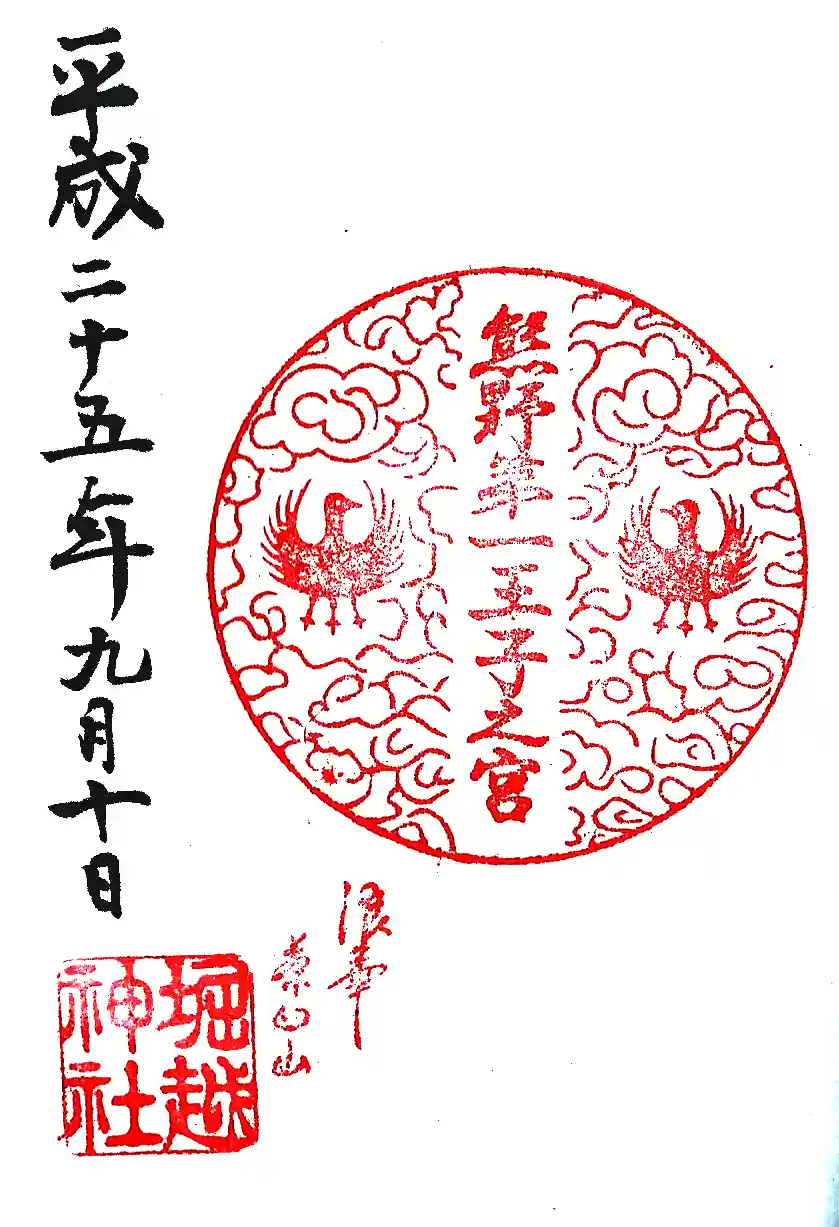 熊野第一王子之宮
浪華
茶臼山
堀越
神社
平成二十五年九月十日